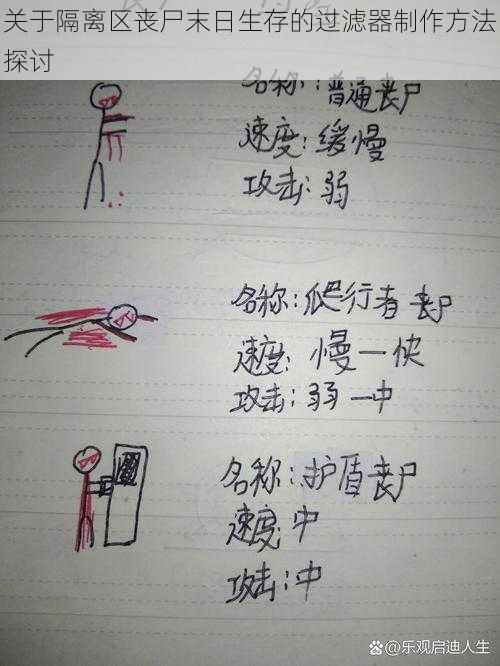 关于隔离区丧尸末日生存的过滤器制作方法
探讨
名称:普通丧尸
速度:缓慢
攻击:弱
名称:爬行者丧尸
速度:慢一快
攻击:弱一中
名称:护盾丧尸
速度:中
攻击:中
@乐观启迪人生